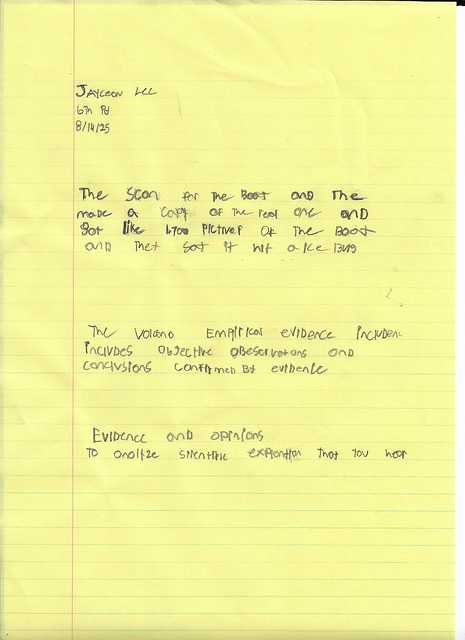 Jayceon Lee
6th Pd
8/14/25
The Scan for the Boat and The
made a copy of the real one and
got like Pictures of The Boat
and that sat it hit a Ice Burg
The Volcano Empirical evidence
includes objective obeservatons and
conclusions confirmed by evidence
Evidence and opinions
To analize scientific explantion That you hear